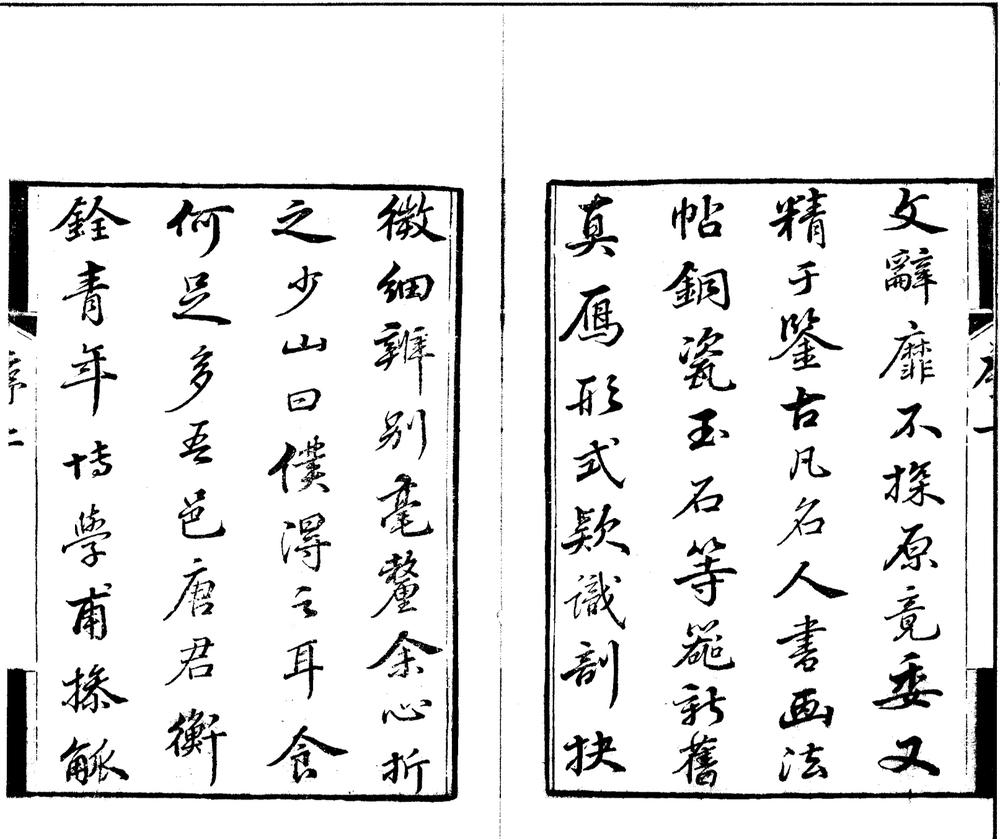 文辭靡不探原竟委又
精于鑒古凡名人書画法
帖銅瓷玉石等器新舊
真鴈形式款識剖抉
序一
微細辨别毫釐余心折
之少山曰僕得之耳食
何足多吾邑唐君衡
銓青年博學甫操觚
序二